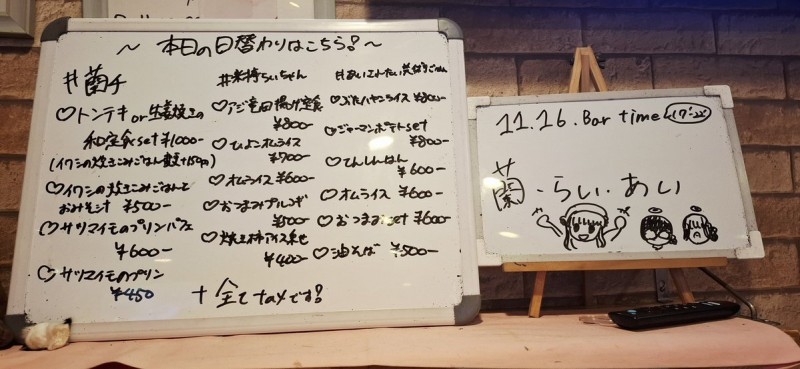 ～ 本日の日替わりはこちら! ～
#蘭チ
♡トンテキ or 生姜焼きの
和定食set ¥1000-
(イワシの炊きこみごはん +150円)
♡イワシの炊きこみごはんと
おみそ汁 ¥500-
♡サツマイモのプリンパフェ
¥600-
♡サツマイモのプリン
¥450
#米持らいちゃん
♡アジ 揚げ定食
¥800-
♡ひよこオムライス
¥700-
♡オムライス ¥600-
♡おつまみプルコギ
¥500-
♡ アイス
¥400-
#あい
♡ぶたハヤシライス ¥800-
♡ジャーマンポテトset
¥800-
♡てんしんはん
¥600-
♡オムライス ¥600-
♡おつまみset ¥600-
♡油そば ¥500-
+全てtaxです!
11.16. Bar time (17-22)
蘭・らい・あい